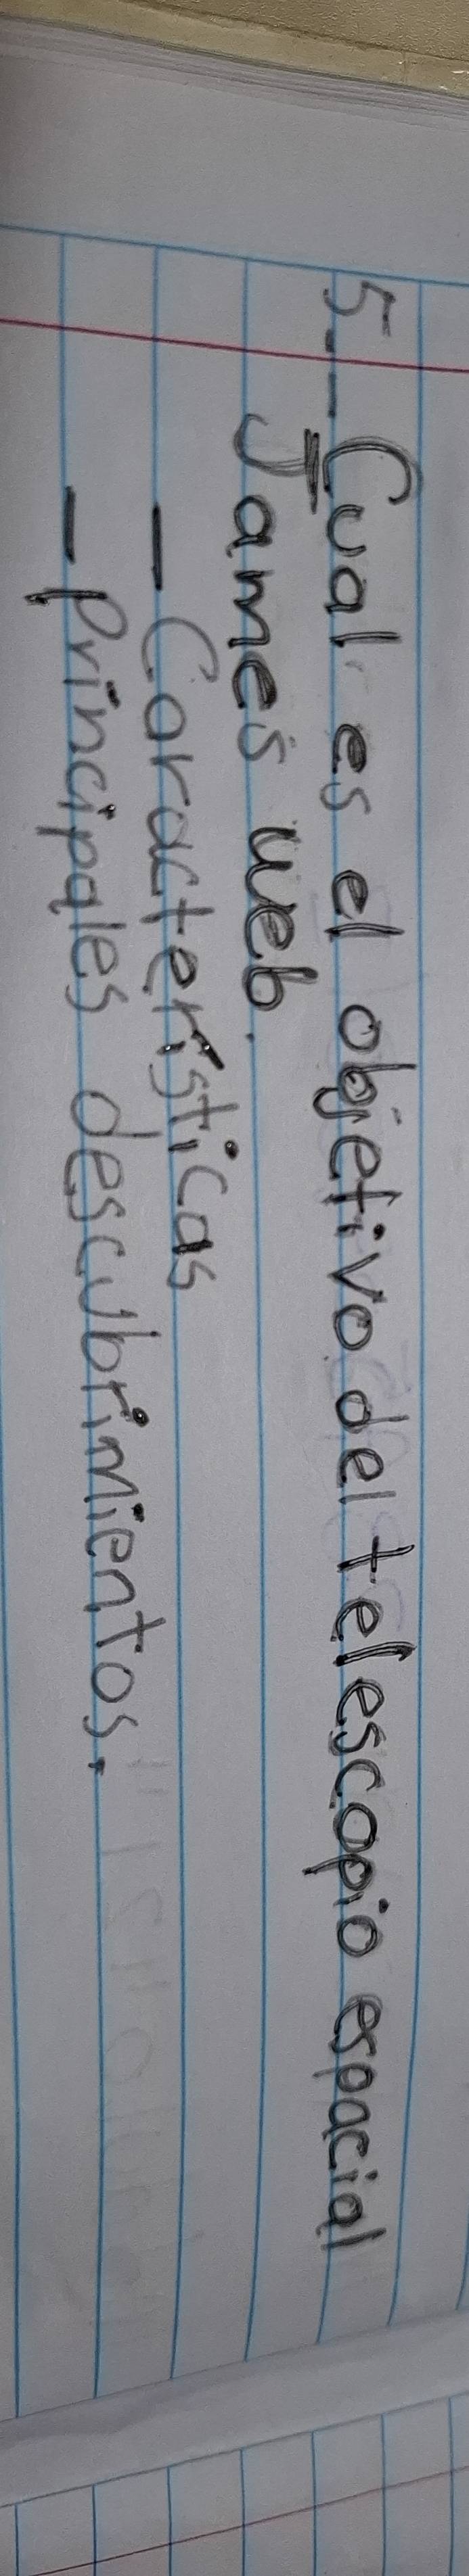 5-- Cual es el objetivo del telescopio espacial
James web.
- Características
- principales descubrimientos.